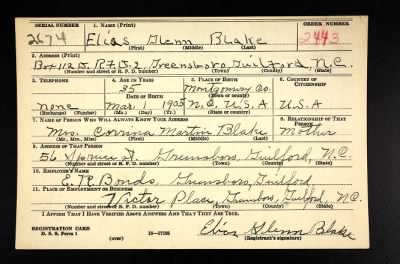 SERIAL NUMBER 1. NAME (Print) ORDER NUMBER
2674 Elias Glenn Blake 2443
(First) (Middle) (Last)
2. ADDRESS (Print)
Box 112 B. R.F.D. 2, Greensboro, Guilford, N.C.
(Number and street or R. F. D. number) (Town) (County) (State)
3. TELEPHONE 4. AGE IN YEARS 5. PLACE OF BIRTH 6. COUNTRY OF CITIZENSHIP
35 Montgomery Co.
DATE OF BIRTH (Town or county)
none Mar. 11 1905 N.C. U.S.A U.S.A
(Exchange) (Number) (Mo.) (Day) (Yr.) (State or country)
7. NAME OF PERSON WHO WILL ALWAYS KNOW YOUR ADDRESS 8. RELATIONSHIP OF THAT PERSON
Mrs. Corrina Martin Blake Mother
(Mr., Mrs., Miss) (First) (Middle) (Last)
9. ADDRESS OF THAT PERSON
56 Spruce St. Greensboro, Guilford, N.C.
(Number and street or R. F. D. number) (Town) (County) (State)
10. EMPLOYER'S NAME
Greensboro, Guilford,
11. PLACE OF EMPLOYMENT OR BUSINESS
Victor Place, Greensboro, Guilford, N.C.
(Number and street or R. F. D. number) (Town) (County) (State)
I AFFIRM THAT I HAVE VERIFIED ABOVE ANSWERS AND THAT THEY ARE TRUE.
REGISTRATION CARD Elias Glenn Blake
D. S. S. Form 1 (over) (Registrant's signature)